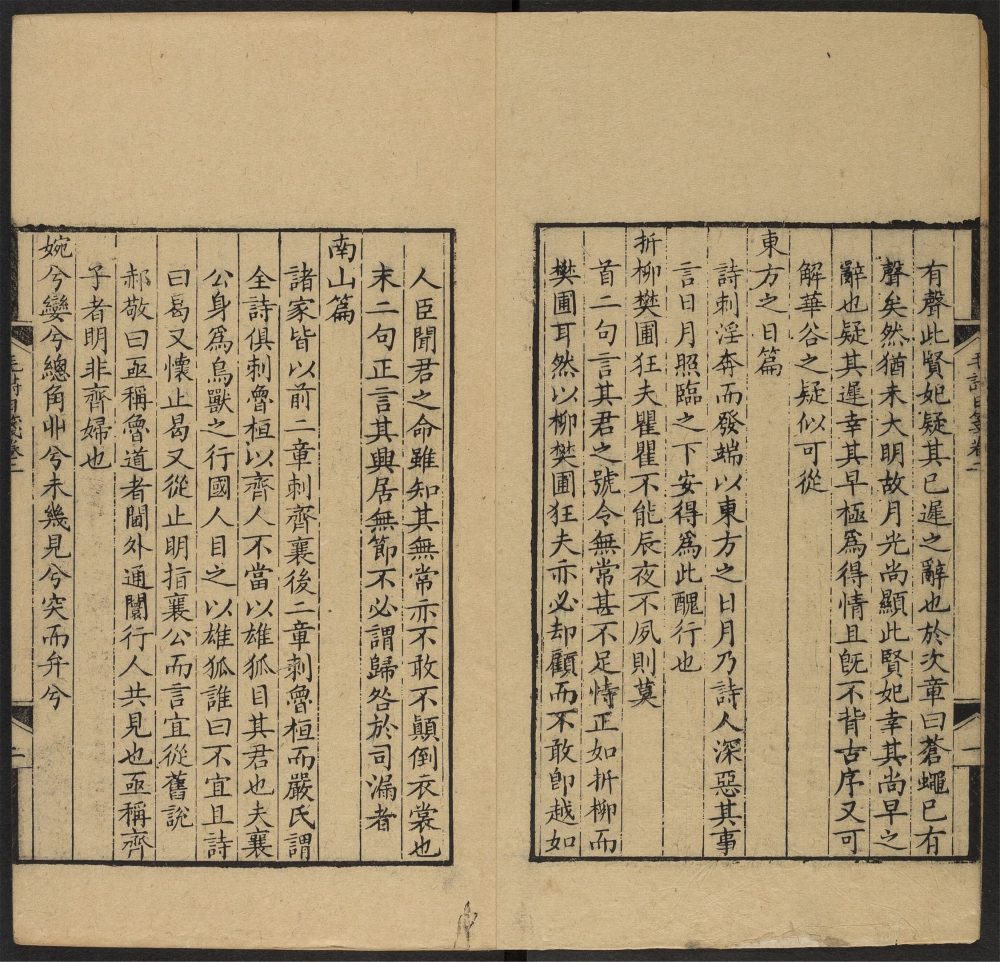 有聲此賢妃疑其已遲之辭也於次章曰蒼蠅已有
聲矣然猶未大明故月光尚顯此賢妃幸其尚早之
辭也疑其遲幸其早極爲得情且旣不背古序又可
解華谷之疑似可從
東方之日篇
詩刺淫奔而發端以東方之日月乃詩人深惡其事
言日月照臨之下安得爲此醜行也
折柳樊圃狂夫瞿瞿不能辰夜不夙則莫
首二句言其君之號令無常甚不足恃正如折柳而
樊圃耳然以柳樊圃狂夫亦必却顧而不敢卽越如
人臣聞君之命雖知其無常亦不敢不顛倒衣裳也
末二句正言其興居無節不必謂歸咎於司漏者
南山篇
諸家皆以前二章刺齊襄後二章刺魯桓而嚴氏謂
全詩俱刺魯桓以齊人不當以雄狐目其君也夫襄
公身爲鳥獸之行國人目之以雄狐誰曰不宜且詩
曰曷又懷止曷又從止明指襄公而言宜從舊說
郝敬曰亟稱魯道者閫外通闤行人共見也亟稱齊
子者明非齊婦也
婉兮孌兮總角丱兮未幾見兮突而弁兮
毛詩日箋卷二
一
毛詩日箋卷二
二